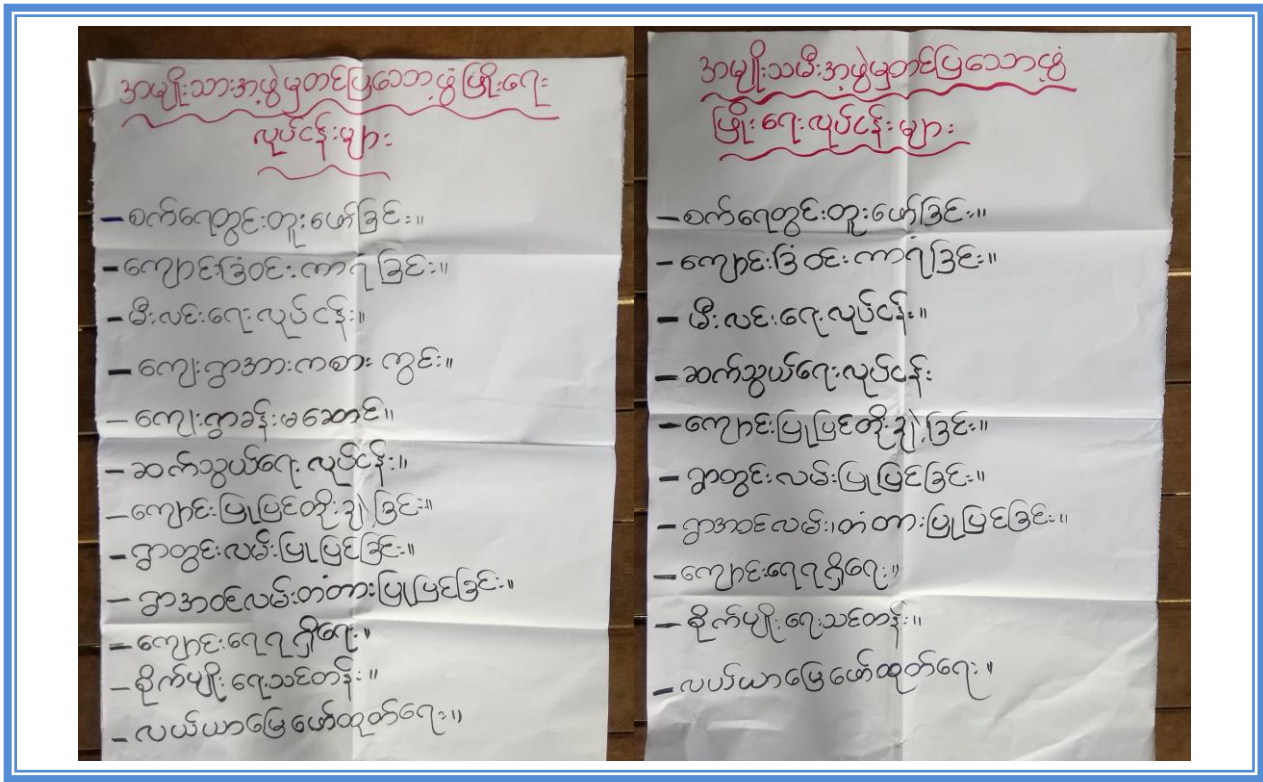 အမျိုးသားအဖွဲ့မှတင်ပြသောဖွံ့ဖြိုးရေး
လုပ်ငန်းများ
- စက်ရေတွင်းတူးဖော်ခြင်း။
- ကျောင်းခြံဝင်းကာရံခြင်း။
- မီးလင်းရေးလုပ်ငန်း။
- ကျေးရွာအားကစားကွင်း။
- ကျေးရွာခန်းမဆောင်။
- ဆက်သွယ်ရေးလုပ်ငန်း။
- ကျောင်းပြုပြင်တိုးချဲ့ခြင်း။
- ရွာတွင်းလမ်းပြုပြင်ခြင်း။
- ရွာအဝင်လမ်းတံတားပြုပြင်ခြင်း။
- ကျောင်းရေရရှိရေး။
- စိုက်ပျိုးရေးသင်တန်း။
- လယ်ယာမြေဖော်ထုတ်ရေး။
အမျိုးသမီးအဖွဲ့မှတင်ပြသောဖွံ့
ဖြိုးရေးလုပ်ငန်းများ
- စက်ရေတွင်းတူးဖော်ခြင်း။
- ကျောင်းခြံဝင်းကာရံခြင်း။
- မီးလင်းရေးလုပ်ငန်း။
- ဆက်သွယ်ရေးလုပ်ငန်း
- ကျောင်းပြုပြင်တိုးချဲ့ခြင်း။
- ရွာတွင်းလမ်းပြုပြင်ခြင်း။
- ရွာအဝင်လမ်း၊တံတားပြုပြင်ခြင်း။
- ကျောင်းရေရရှိရေး။
- စိုက်ပျိုးရေးသင်တန်း။
- လယ်ယာမြေဖော်ထုတ်ရေး။